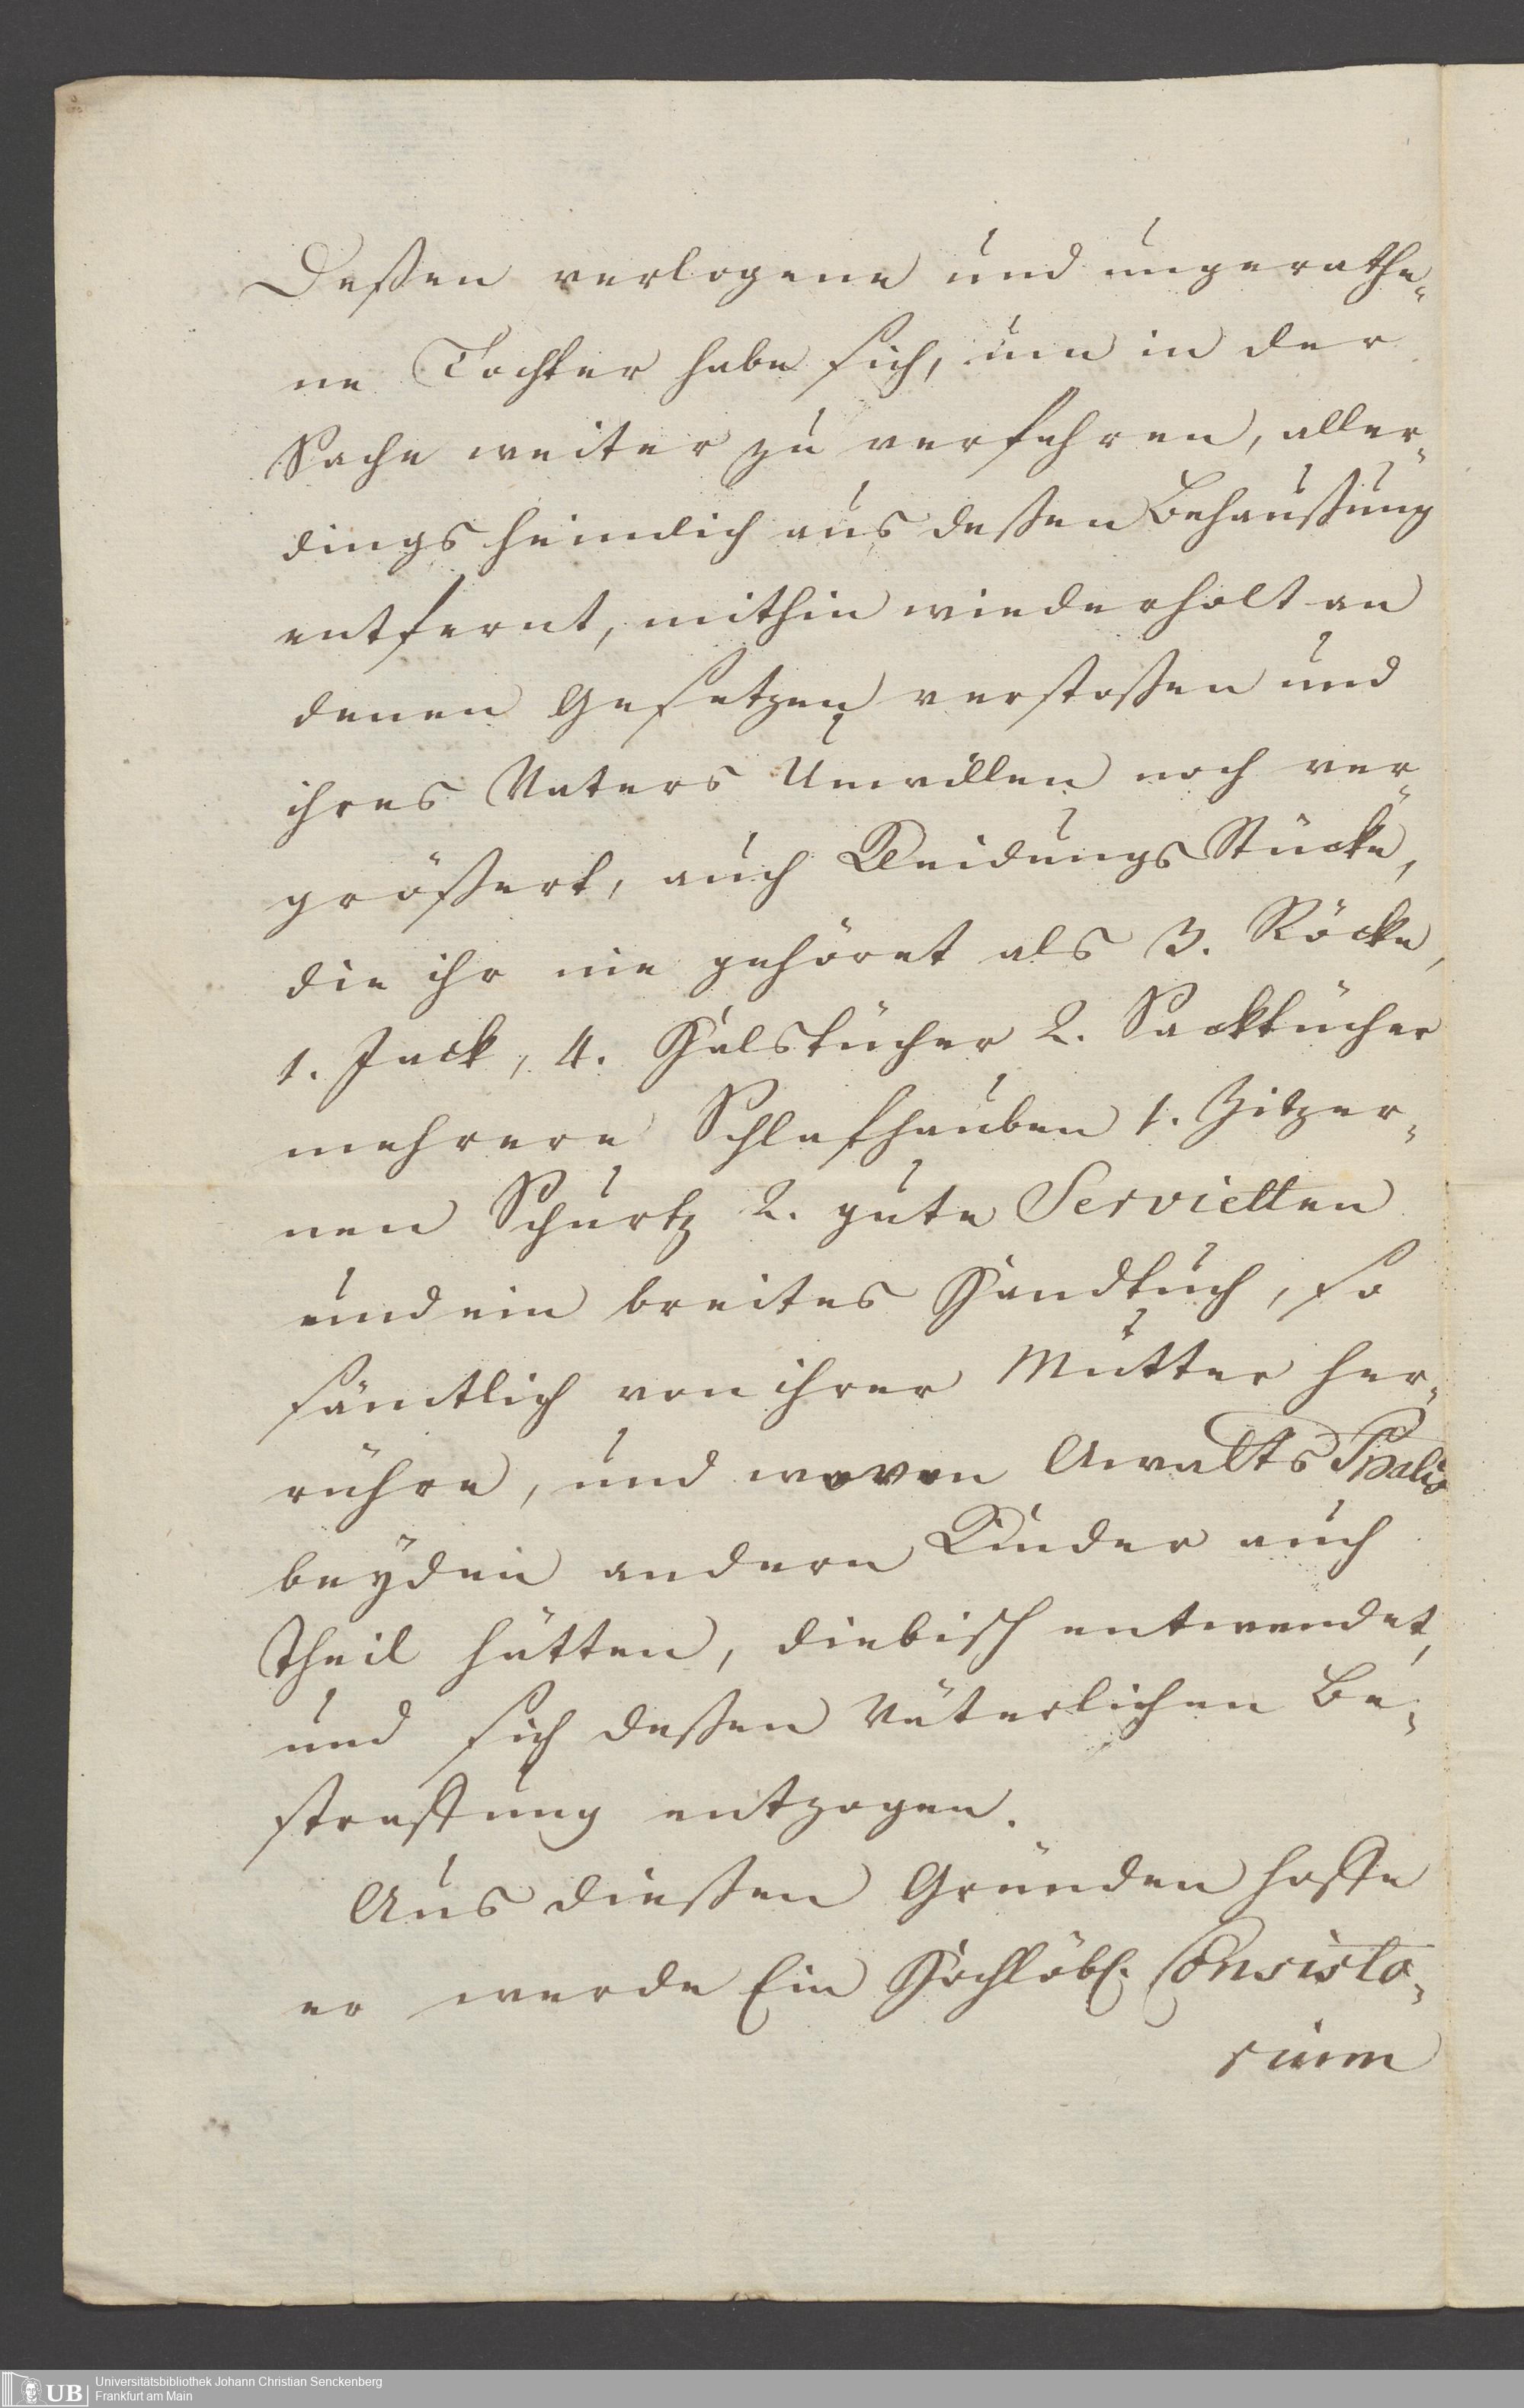 Deßen verlogene und ungerathe-
ne Tochter habe sich, um in der
Sache weiter zu verfahren, aller-
dings heimlich aus deßen Behaußung
entfernt, mithin wiederholt an
denen Gesetzen verstoßen und
ihres Vaters Unwillen noch ver-
größert, auch Kleidungs Stücke,
die ihr nie gehöret als 3. Röcke,
1. Jack, 4. Halstücher 2. Sacktücher
mehrere Schlafhauben 1. Zitzer-
nen Schurtz 2. gute Servietten
und ein breites Handtuch, so
sämtlich von ihrer Mutter her-
rühre, und wovon Anwalts Ppalis
beyden andern Kinder auch
Theil hätten, diebisch entwendet,
und sich deßen Väterlichen Be-
straffung entzogen.
Aus dießen Gründen hoffe
er werde Ein Hochlöbl. Consisto-
rium
UB Universitätsbibliothek Johann Christian Senckenberg
Frankfurt am Main